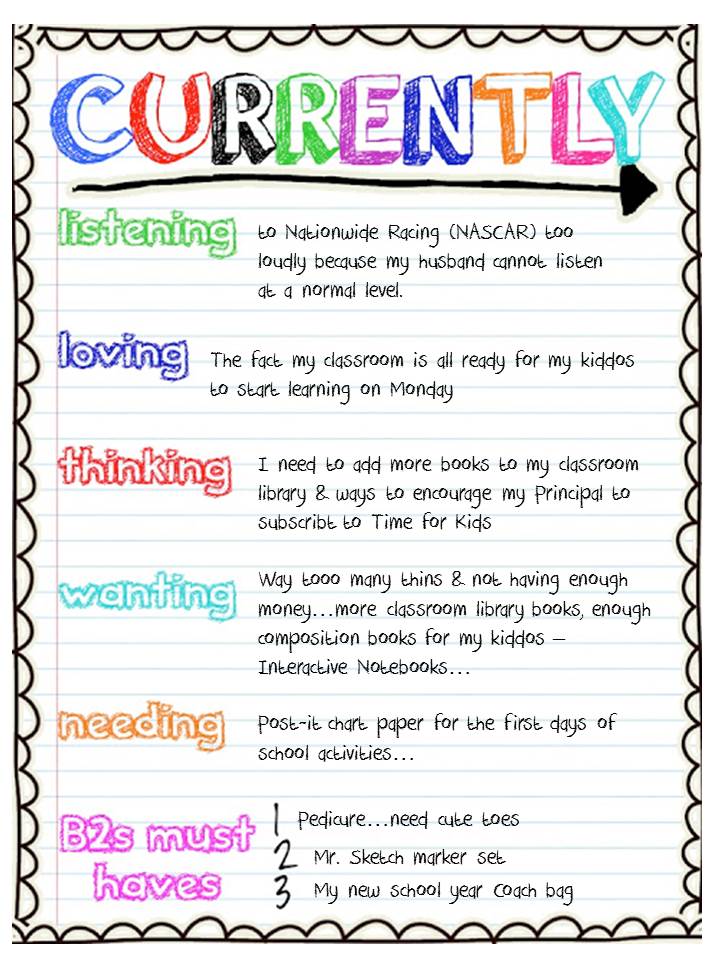 CURRENTLY
listening
to Nationwide Racing (NASCAR) too
loudly because my husband cannot listen
at a normal level.
loving
The fact my classroom is all ready for my kiddos
to start learning on Monday
thinking
I need to add more books to my classroom
library & ways to encourage my Principal to
subscribt to Time for Kids
wanting
Way tooo many thins & not having enough
money...more classroom library books, enough
composition books for my kiddos –
Interactive Notebooks...
needing
Post-it chart paper for the first days of
school activities...
B2s must
haves
1 Pedicure...need cute toes
2 Mr. Sketch marker set
3 My new school year Coach bag